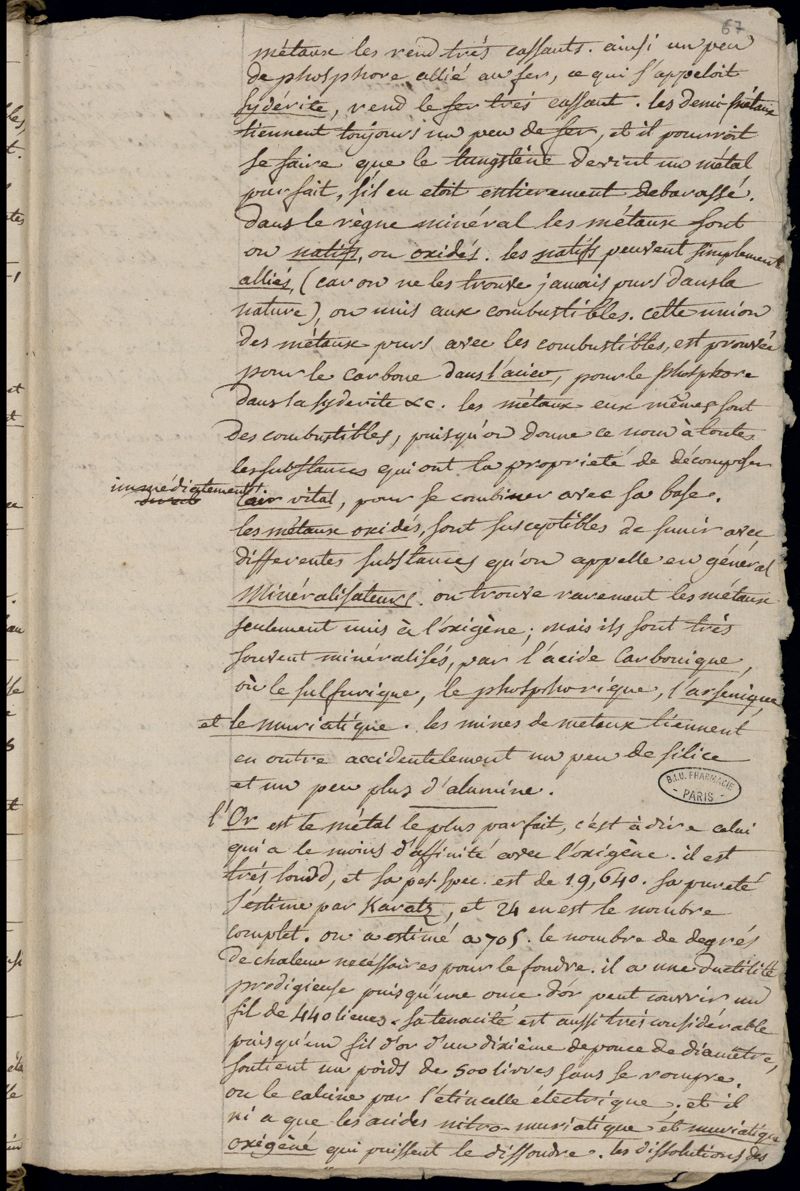 67
métaux les rend très cassants. ainsi un peu
de phosphore allié au fer, ce qui s'appeloit
sydérite, rend le fer très cassant. les demi-métaux
tiennent toujours un peu de fer, et il pourroit
se faire que le tungstène devint un métal
parfait, s'il en etoit entierement debarassé.
Dans le règne minéral les métaux sont
ou natifs, ou oxidés. les natifs peuvent simplement
alliés, (car on ne les trouve jamais purs dans la
nature), ou unis aux combustibles. cette union
des métaux purs avec les combustibles, est prouvée
pour le carbone dans l'acier, pour le phosphore
dans la syderite &c. les métaux eux mêmes sont
des combustibles, puisqu'on donne ce nom à toutes
les substances qui ont la propriété de décomposer
immédiatement l'air vital, pour se combiner avec sa base.
les métaux oxidés, sont susceptibles de s'unir avec
differentes substances qu'on appelle en général
Minéralisateurs. on trouve rarement les métaux
seulement unis à l'oxigène; mais ils sont très
souvent minéralisés, par l'acide Carbonique,
où le sulfurique, le phosphorique, l'arsénique,
et le muriatique. les mines de metaux tiennent
en outre accidentelement un peu de silice
et un peu plus d'alumine.
B.I.U. PHARMACIE
- PARIS -
l'Or est le métal le plus parfait, c'est à dire celui
qui a le moins d'affinité avec l'oxigène. il est
très lourd, et sa pes. spec. est de 19,640. sa pureté
s'éstime par Karatz, et 24 en est le nombre
complet. on a estimé a 705. le nombre de degrés
de chaleur necéssaires pour le fondre. il a une ductilité
prodigieuse puisqu'une once d'or peut couvrir un
fil de 440 lieues. sa tenacité est aussi très considérable
puisqu'un fil d'or d'un dixième de pouce de diamètre,
soutient un poids de 500 livres sans se rompre.
on le calcine par l'étincelle électrique; et il
ni a que les acides nitro-muriatique et muriatique
oxigèné qui puissent le dissoudre. les dissolutions des